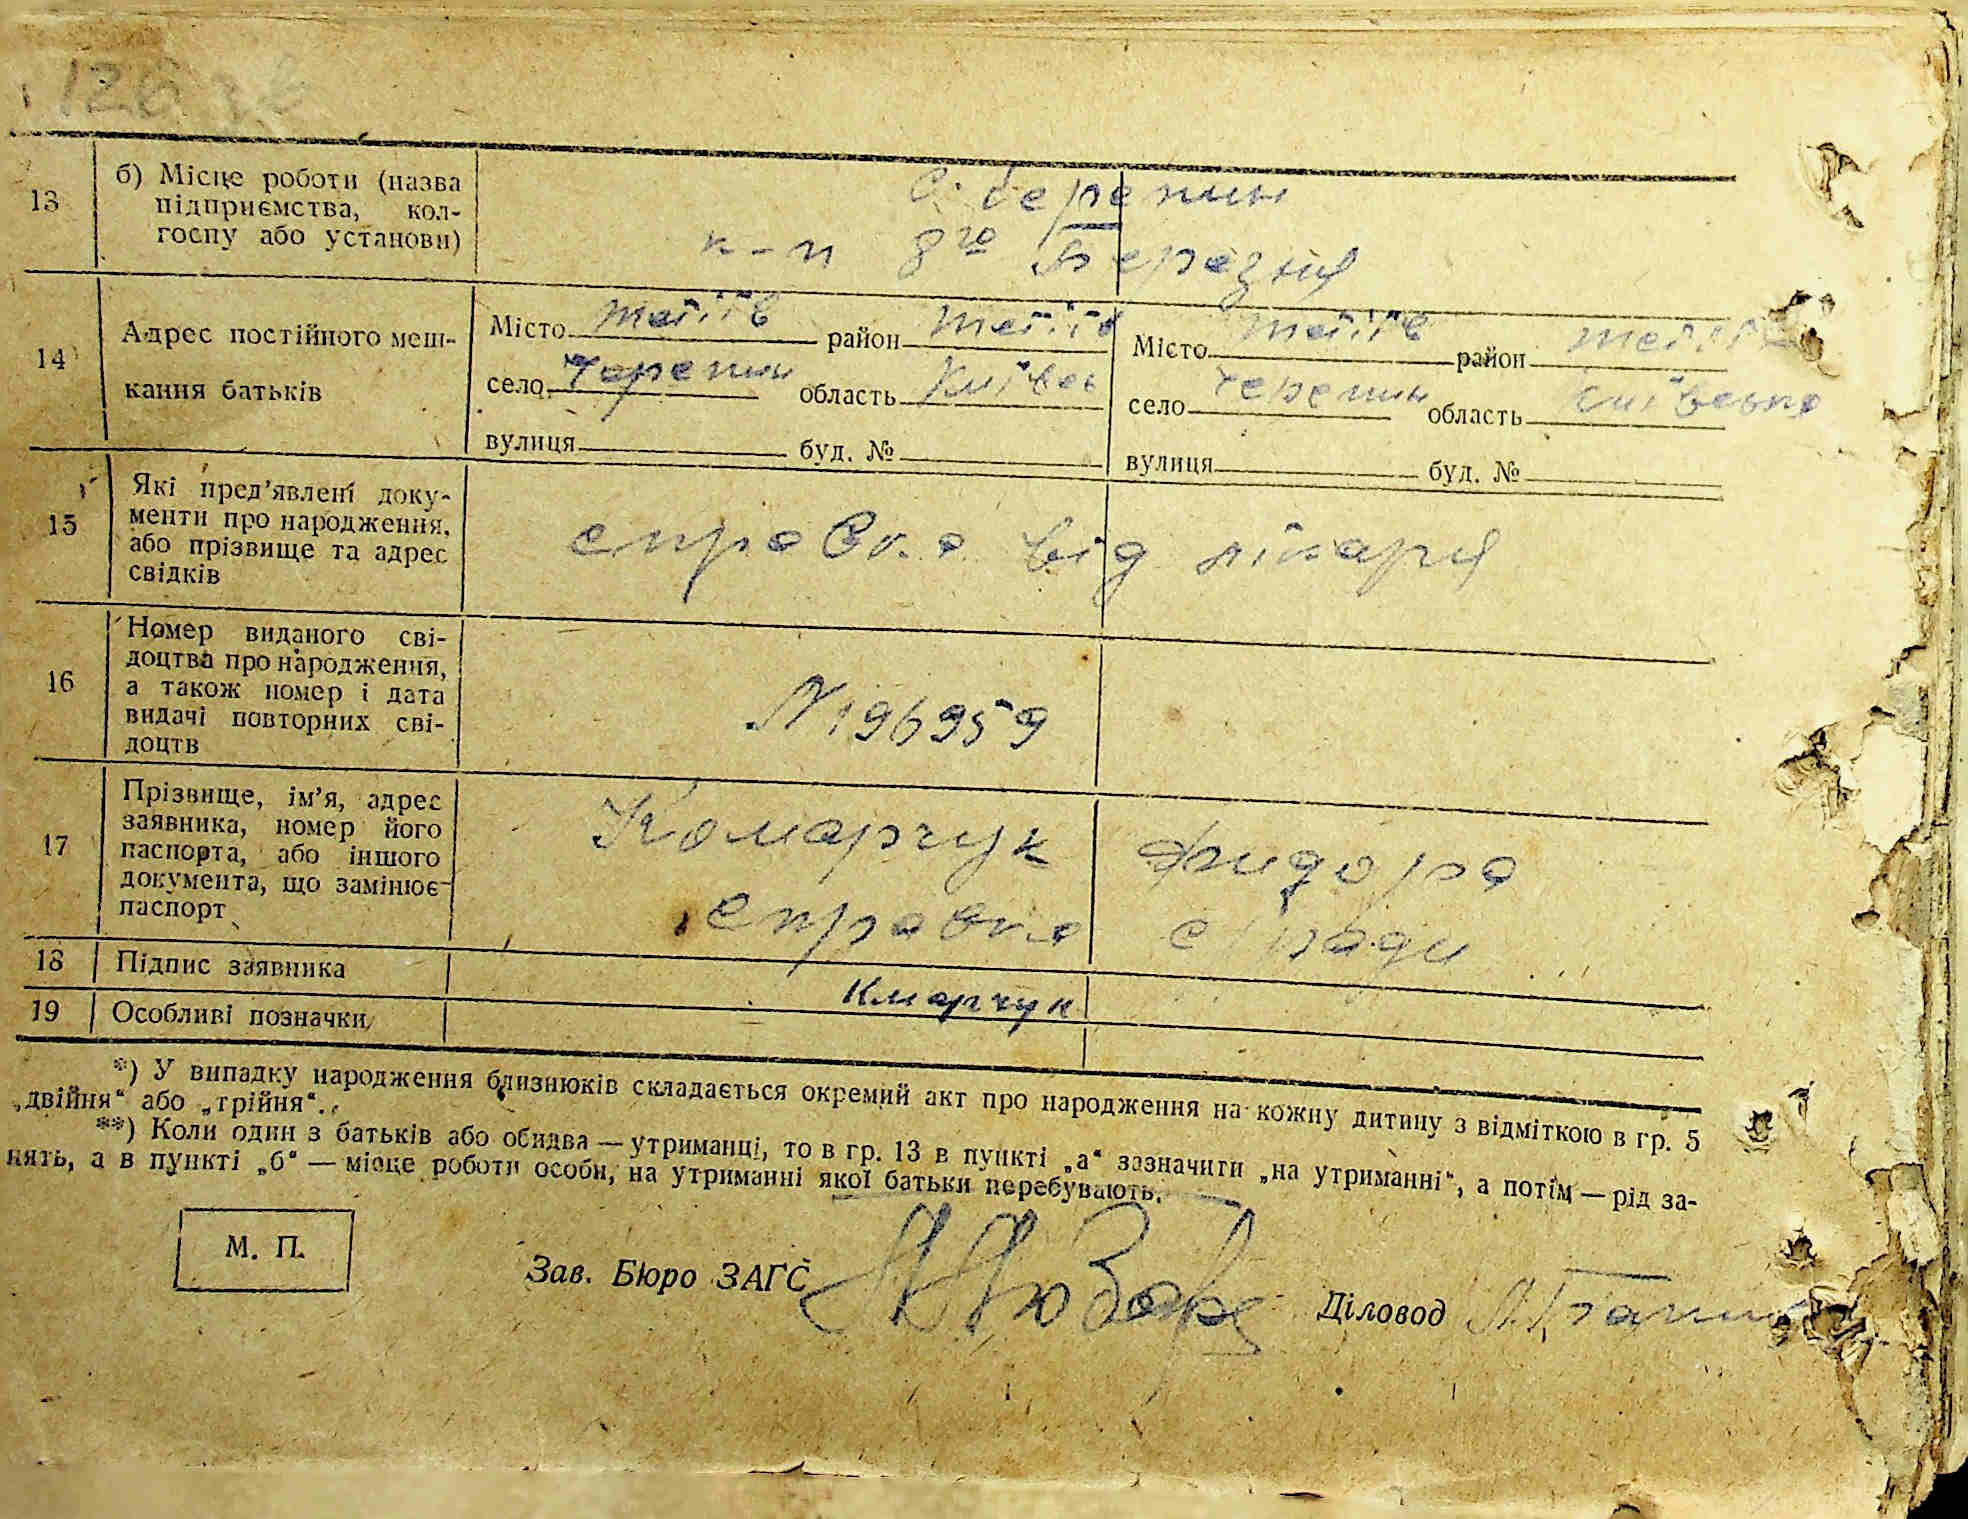 13 б) Місце роботи (назва
підприємства, кол-
госпу або установи)
с. Черепин
к-п 8го Березня
14 Адрес постійного меш-
кання батьків
Місто Тетіїв район Тетіїв Місто Тетіїв район Тетіїв
село Черепин область Київсь село Черепин область Київсько
вулиця буд. № вулиця буд. №
15 Які пред'явлені доку-
менти про народження,
або прізвище та адрес
свідків
справка від лікаря
16 Номер виданого сві-
доцтва про народження,
а також номер і дата
видачі повторних сві-
доцтв
N 196959
17 Прізвище, ім'я, адрес
заявника, номер його
паспорта, або іншого
документа, що замінює
паспорт
Комарчук Фидора
справка с/ради
18 Підпис заявника Кмарчук
19 Особливі позначки
*) У випадку народження близнюків складається окремий акт про народження на кожну дитину з відміткою в гр. 5
„двійня“ або „трійня“.
**) Коли один з батьків або обидва — утриманці, то в гр. 13 в пункті „а“ зазначити „на утриманні“, а потім — рід за-
нять, а в пункті „б“ — місце роботи особи, на утриманні якої батьки перебувають.
М. П.
Зав. Бюро ЗАГС
Діловод